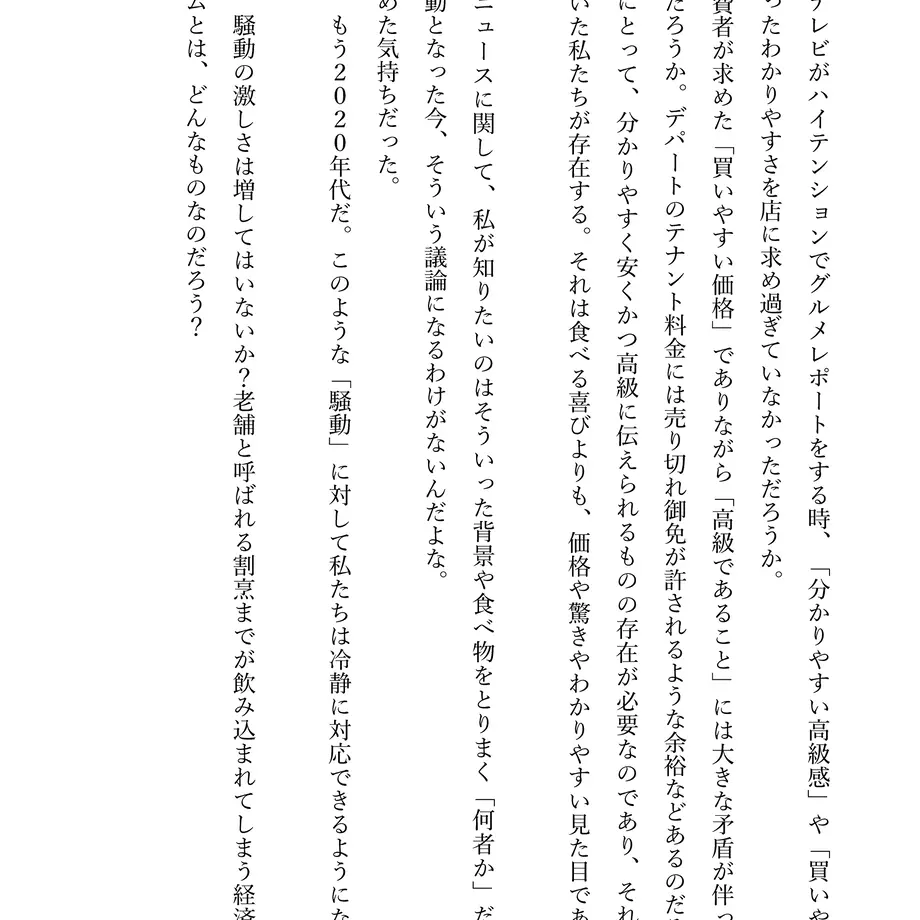 テレビがハイテンションでグルメレポートをする時、「分かりやすい高級感」や「買いや
ったわかりやすさを店に求め過ぎていなかっただろうか。
費者が求めた「買いやすい価格」でありながら「高級であること」には大きな矛盾が伴っ
だろうか。デパートのテナント料金には売り切れ御免が許されるような余裕などあるのだろ
にとって、分かりやすく安くかつ高級に伝えられるものの存在が必要なのであり、それ
いた私たちが存在する。それは食べる喜びよりも、価格や驚きやわかりやすい見た目であ
ニュースに関して、私が知りたいのはそういった背景や食べ物をとりまく「何者か」だ
動となった今、そういう議論になるわけがないんだよな。
めた気持ちだった。
もう2020年代だ。このような「騒動」に対して私たちは冷静に対応できるようにな
騒動の激しさは増してはいないか?老舗と呼ばれる割烹までが飲み込まれてしまう経済
ムとは、どんなものなのだろう?